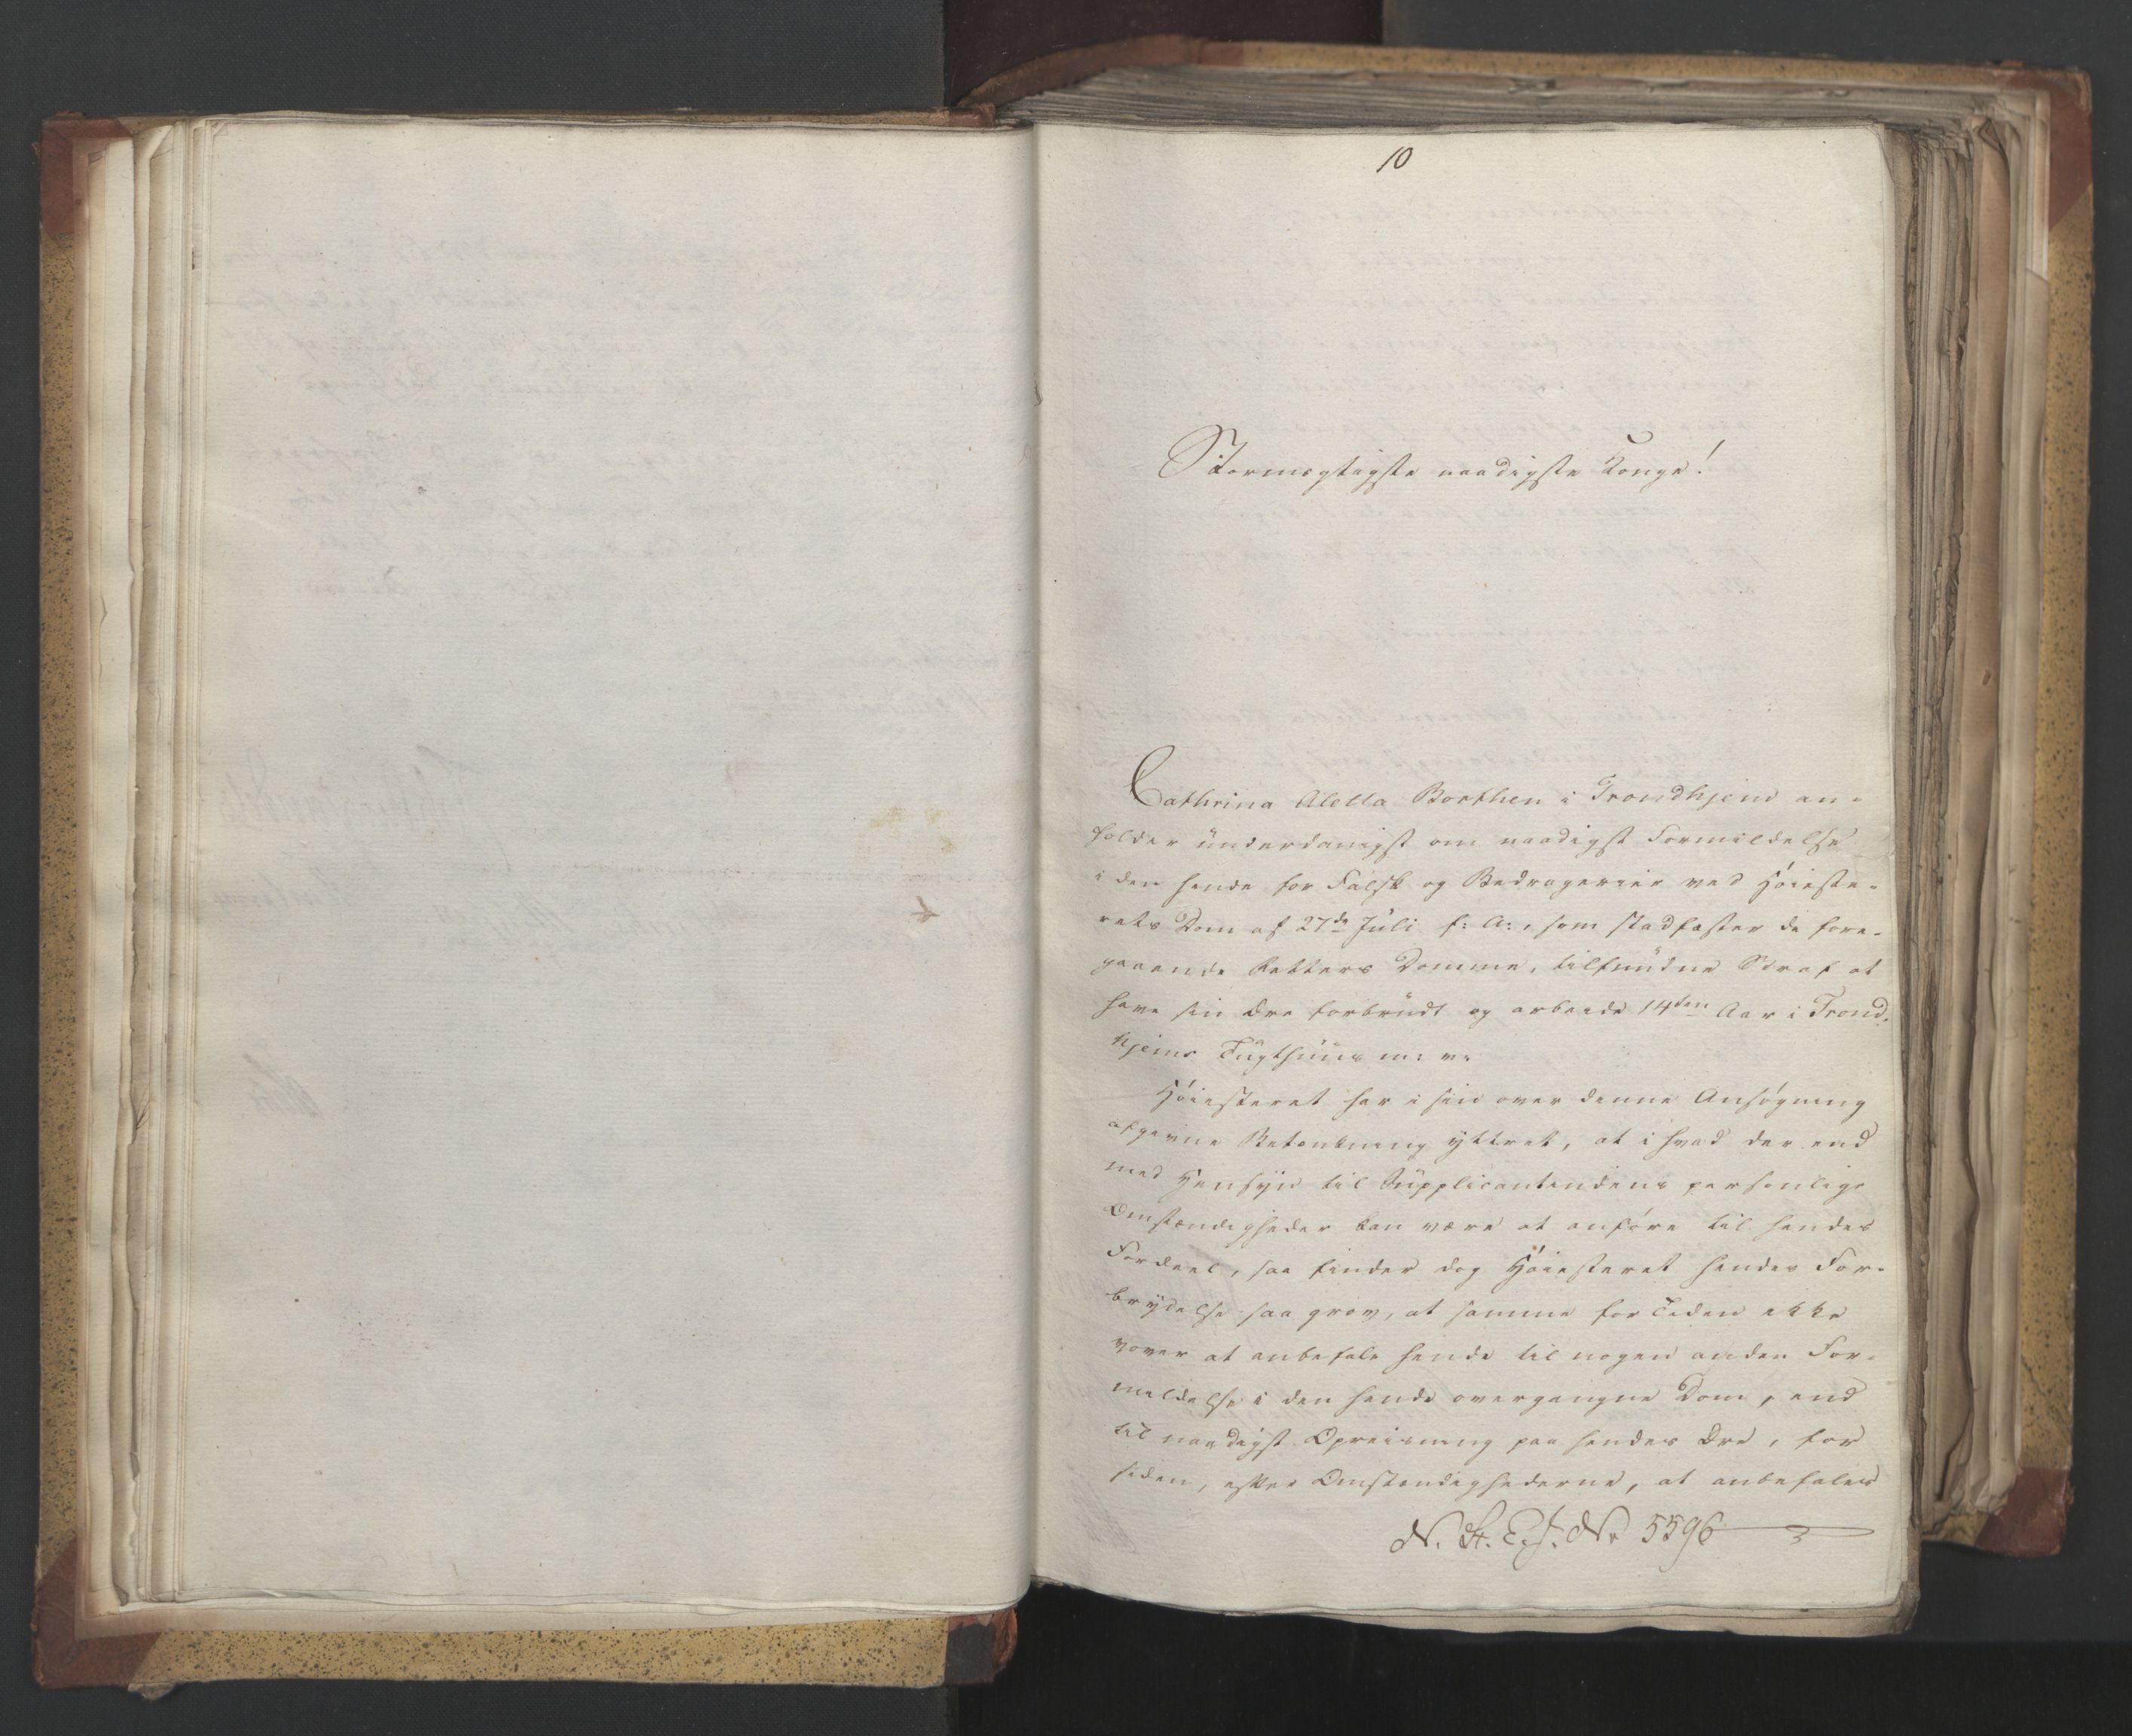 10
Stormægtigste naadigste Konge!
Cathrina Aletta Borthen i Trondhjem an-
holder ünderdanigst om naadigst Formildelse
i den hende for Falsk og Bedragerier ved Høieste-
rets Dom af 27de Juli f: A:, som stadfæster de fore-
gaaende Retters Domme, tilfundne Straf at
have sin Ære forbrüdt og arbeide 14ten Aar i Trond-
hjems Tügthüüs m: v:
Høiesteret har i sin over denne Ansøgning
afgivne Betænkning yttret, at i hvad der end
med Hensyn til Süpplicantindens personlige
Omstændigheder kan være at anføre til hendes
Fordeel, saa finder dog Høiesteret hendes For-
brydelse saa grov, at samme for Tiden ikke
vover at anbefale hende til nogen anden For-
mildelse i den hende overgangne Dom, end
til naadigst Opreisning paa hendes Ære, for
siden, efter Omstændighederne, at anbefales
N. St. E. J. Nr 5596